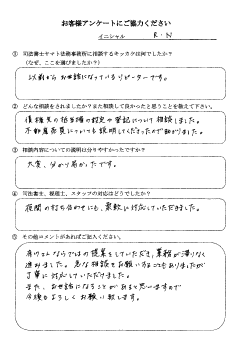 お客様アンケートにご協力ください
イニシャル R.N
① 司法書士ヤマト法務事務所に相談するキッカケは何でしたか？
（なぜ、ここを選びましたか？）
以前からお世話になっているリピーターです。
② どんな相談をされましたか？また相談して良かったと思うことを教えて下さい。
債権先の抵当権の設定や登記について相談しました。
不動産売買についても説明してくださったので助かりました。
③ 相談内容についての説明は分りやすかったですか？
大変、分かり易かったです。
④ 司法書士、税理士、スタッフの対応はどうでしたか？
夜間の打ち合わせにも、柔軟に対応していただきました。
⑤ その他コメントがあればご記入ください。
ならではの提案をしていただき、業務が滞りなく
進みました。急な相談をお願いすることもありましたが
丁寧に対応していただけました。
また、お世話になることがあると思いますので
今後もよろしくお願い致します。